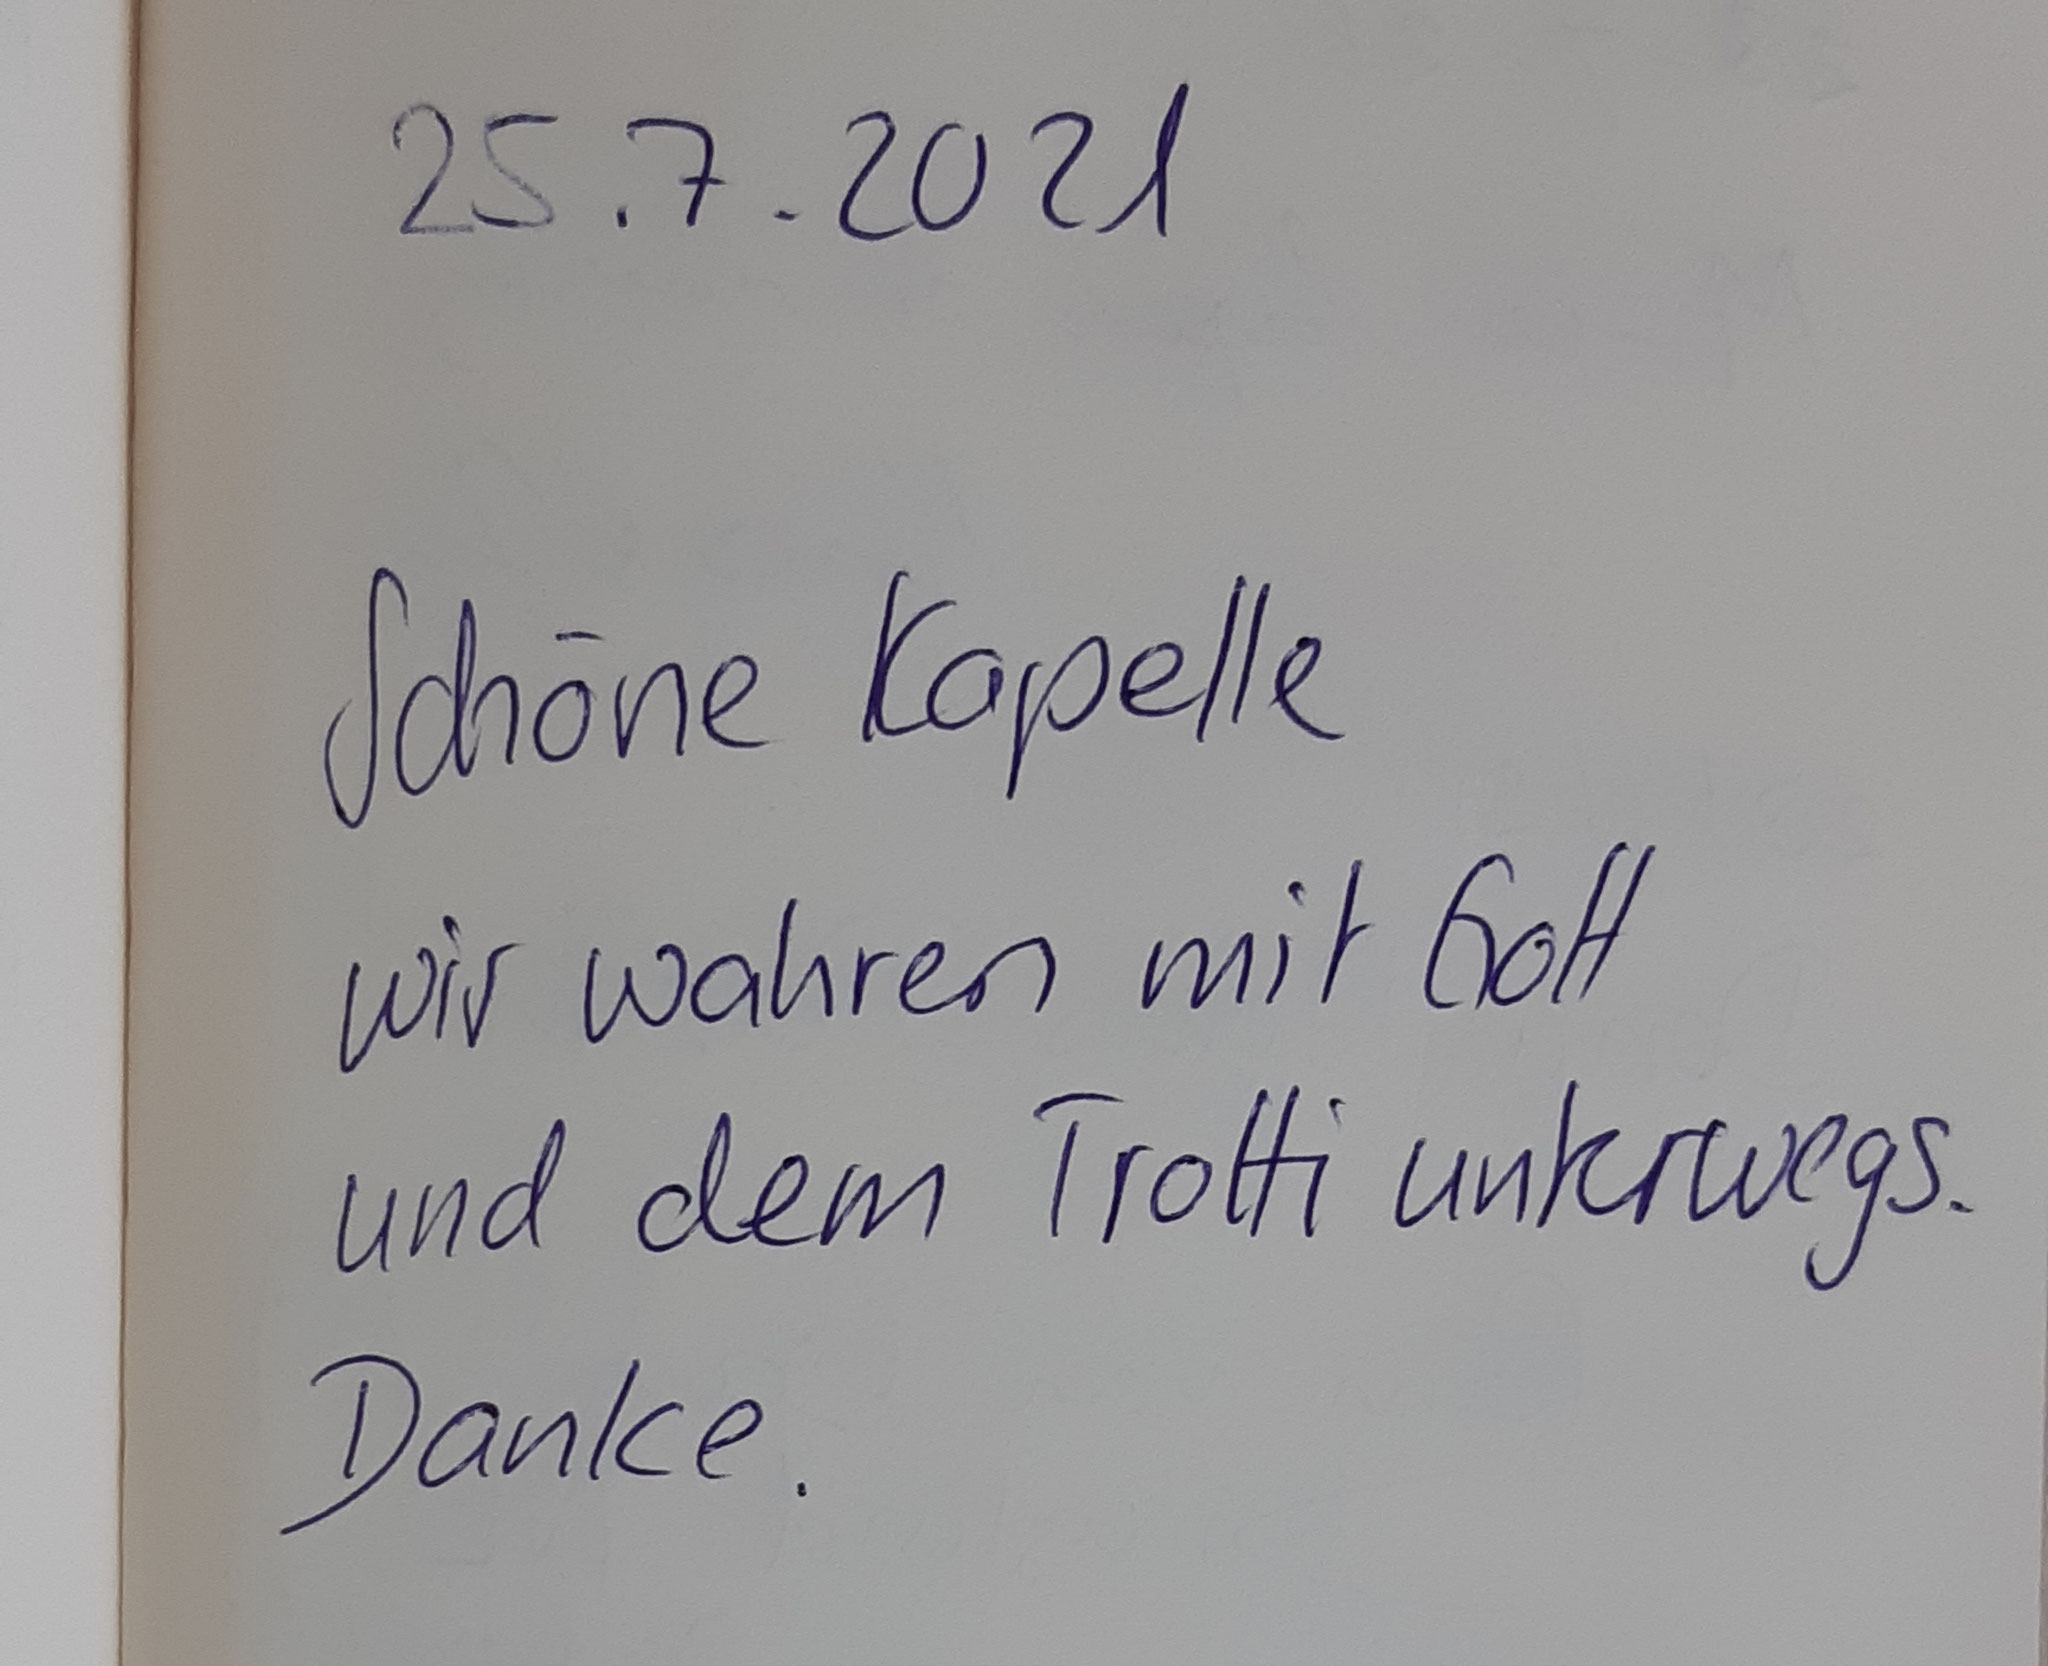 25.7.2021
Schöne Kapelle
wir wahren mit Gott
und dem Trotti unterwegs.
Danke.